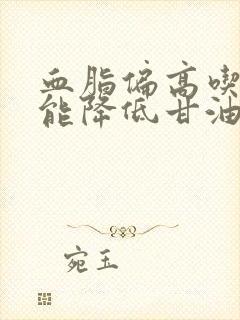 血脂偏高喫
能降低甘油
宛玉